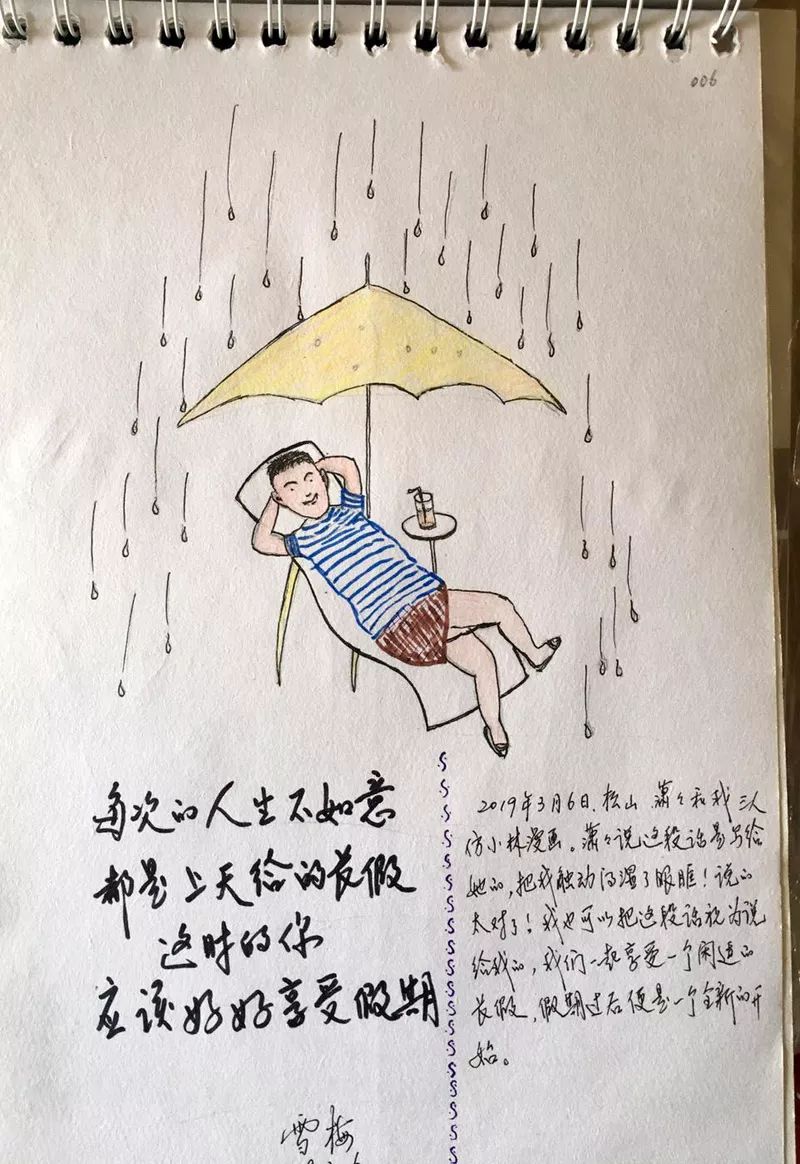 006
每次的人生不如意
都是上天给的长假
这时的你
应该好好享受假期
雪梅
2019年3月6日、松山 萧々和我三人
仿小林漫画。萧々说这段话是写给
她的,把我触动得湿了眼眶!说的
太对了!我也可以把这段话视为说
给我的,我们一起享受一个闲适的
长假,假期过后便是一个全新的开
始。